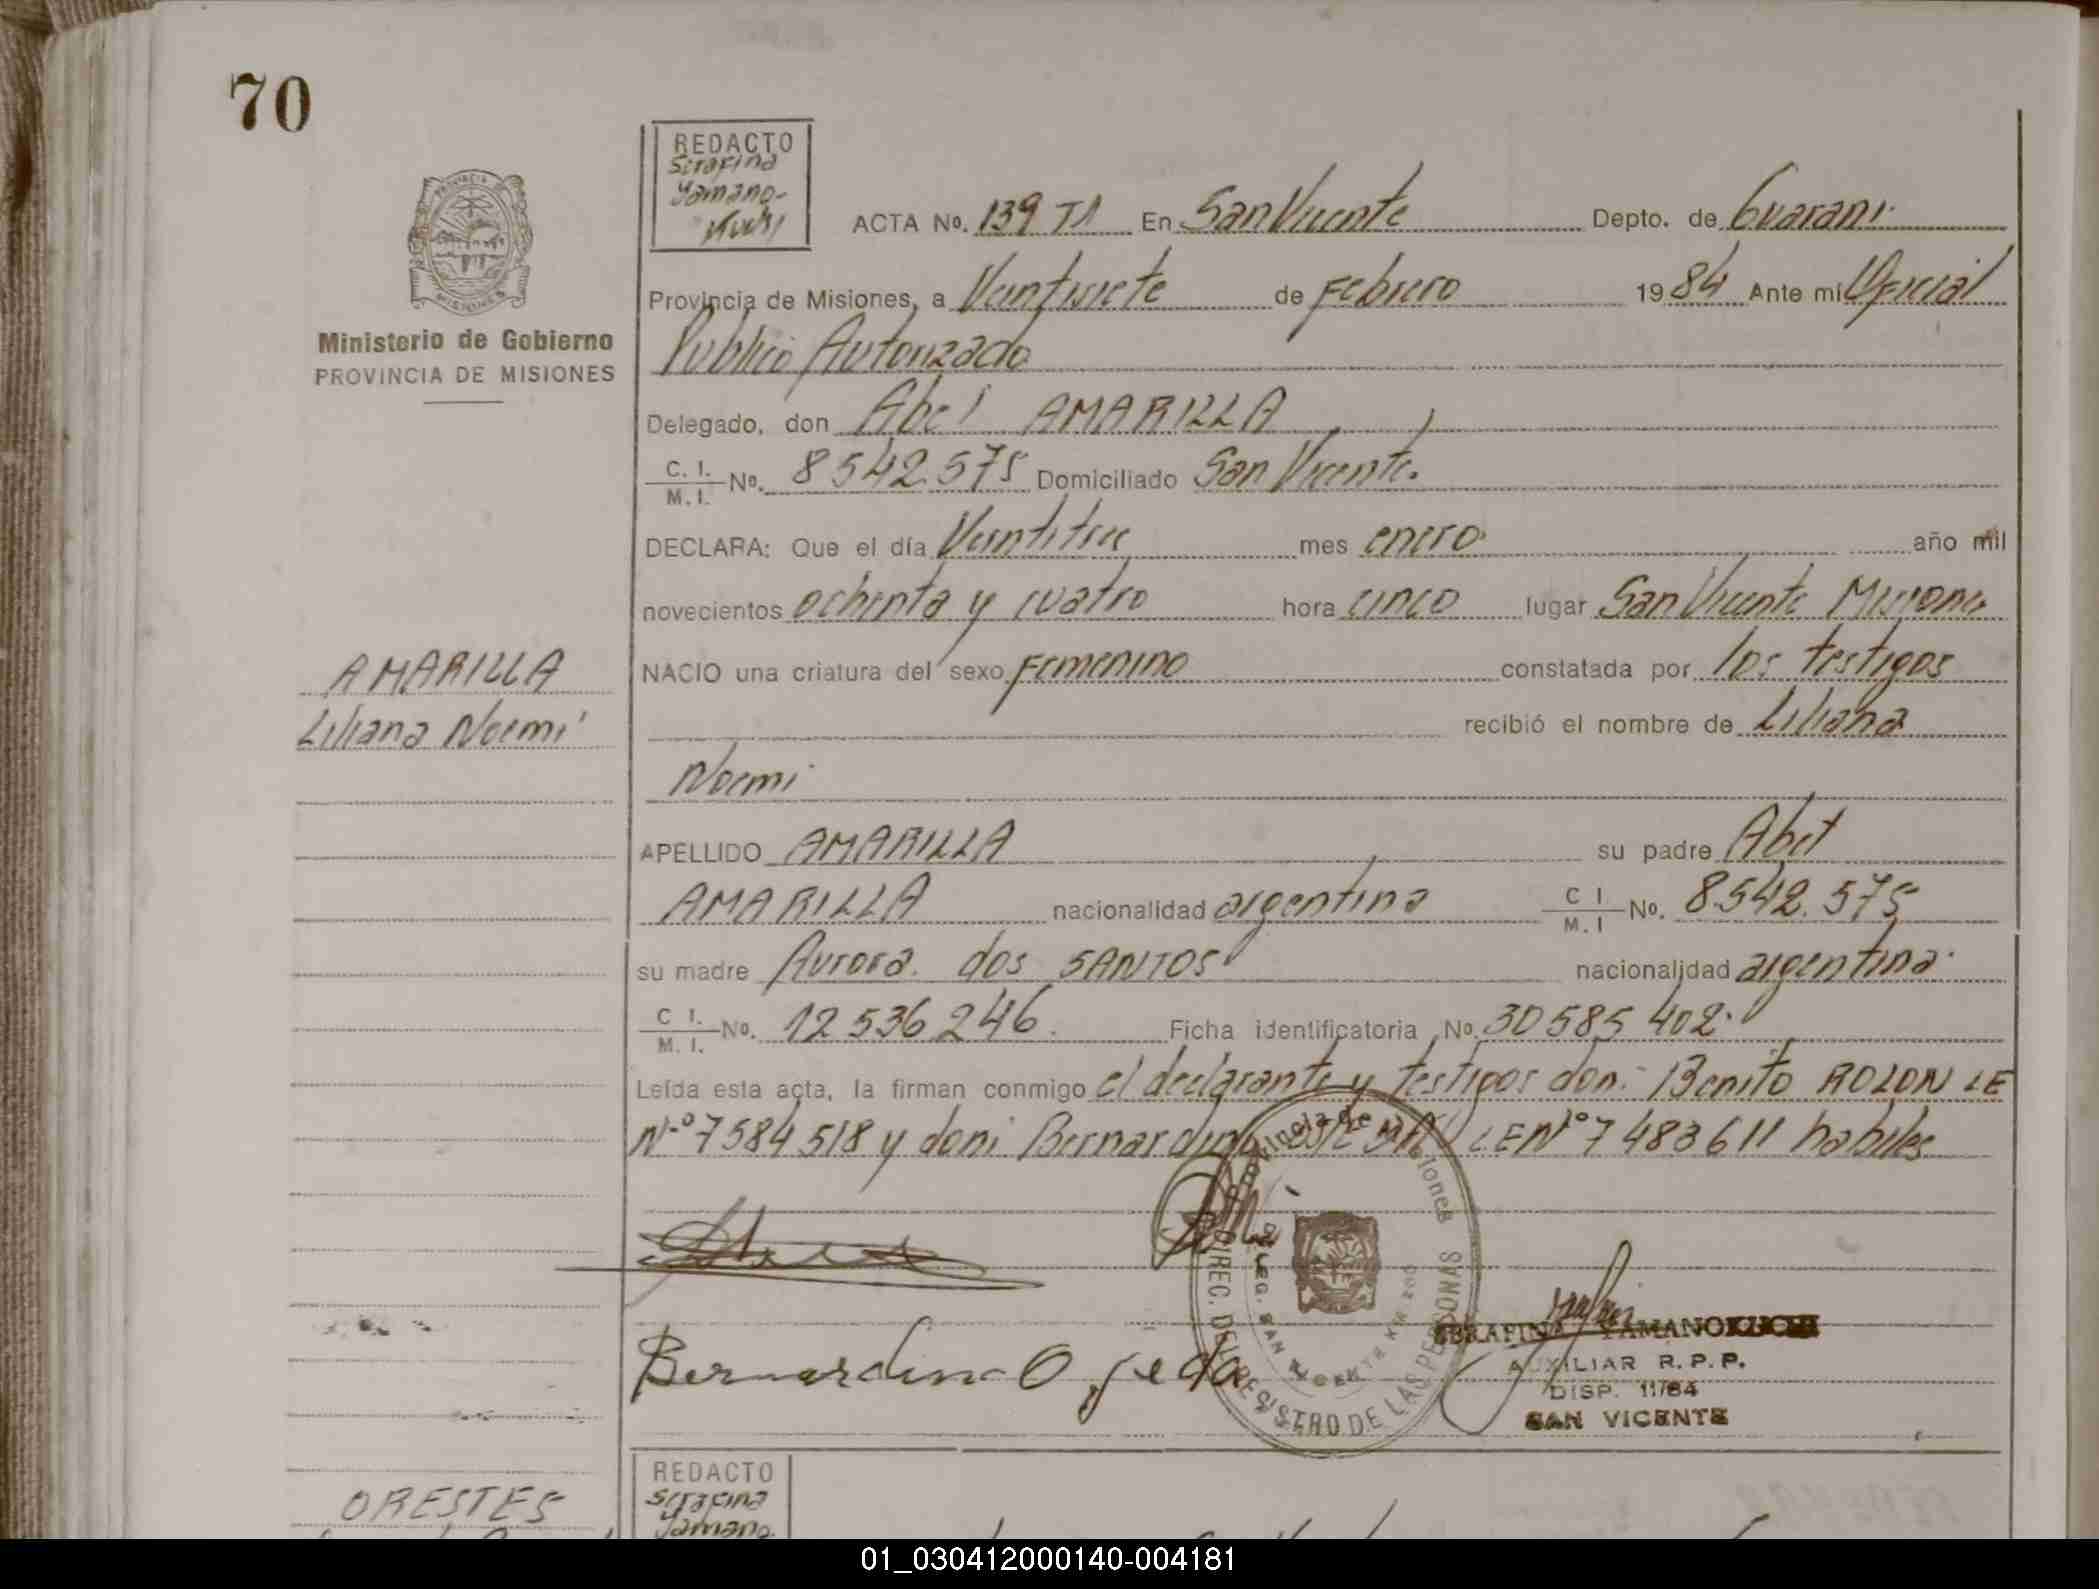 70
REDACTO
Serafina
Yamano-
PROVINCIA DE
MISIONES
Ministerio de Gobierno
PROVINCIA DE MISIONES
ACTA No. 139 T1 En San Vicente Depto. de Guarani
Provincia de Misiones, a Veintisiete de Febrero 1984 Ante mi Oficial
Publico Autorizado
Delegado, don Abel AMARILLA
C. I. / M. I. No. 8542.575 Domiciliado San Vicente.
DECLARA: Que el día Veintitres mes enero año mil
novecientos ochenta y cuatro hora cinco lugar San Vicente Misiones
AMARILLA
Liliana Noemí
NACIO una criatura del sexo Femenino constatada por los testigos
recibió el nombre de Liliana
Noemi
APELLIDO AMARILLA su padre Abel
AMARILLA nacionalidad argentina C I / M. I No. 8.542.575
su madre Aurora dos SANTOS nacionalidad argentina
C I. / M. I. No. 12 536 246. Ficha identificatoria No. 30 585 402
Leída esta acta, la firman conmigo el declarante y testigos don: Benito ROLON LE
Nº 7584 518 y don: Bernardino LE Nº 7 483 611 habiles
Bernardino Ojeda
Provincia de Misiones
DIREC. DEL REGISTRO DE LAS PERSONAS
SERAFINA YAMANO
AUXILIAR R.P.P.
DISP. 11/84
SAN VICENTE
REDACTO
Serafina
Yamano
ORESTES
01_030412000140-004181